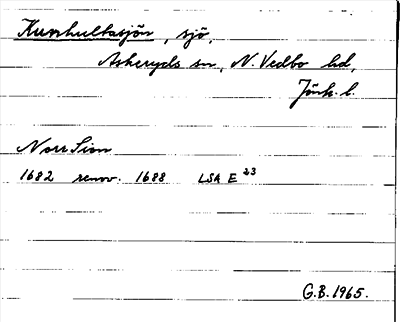 Kumhultasjön, sjö,
Askeryds sn, N. Vedbo hd,
Jönk. l.
Norr Sion
1682 renov. 1688 LSA E 23
G.B. 1965.